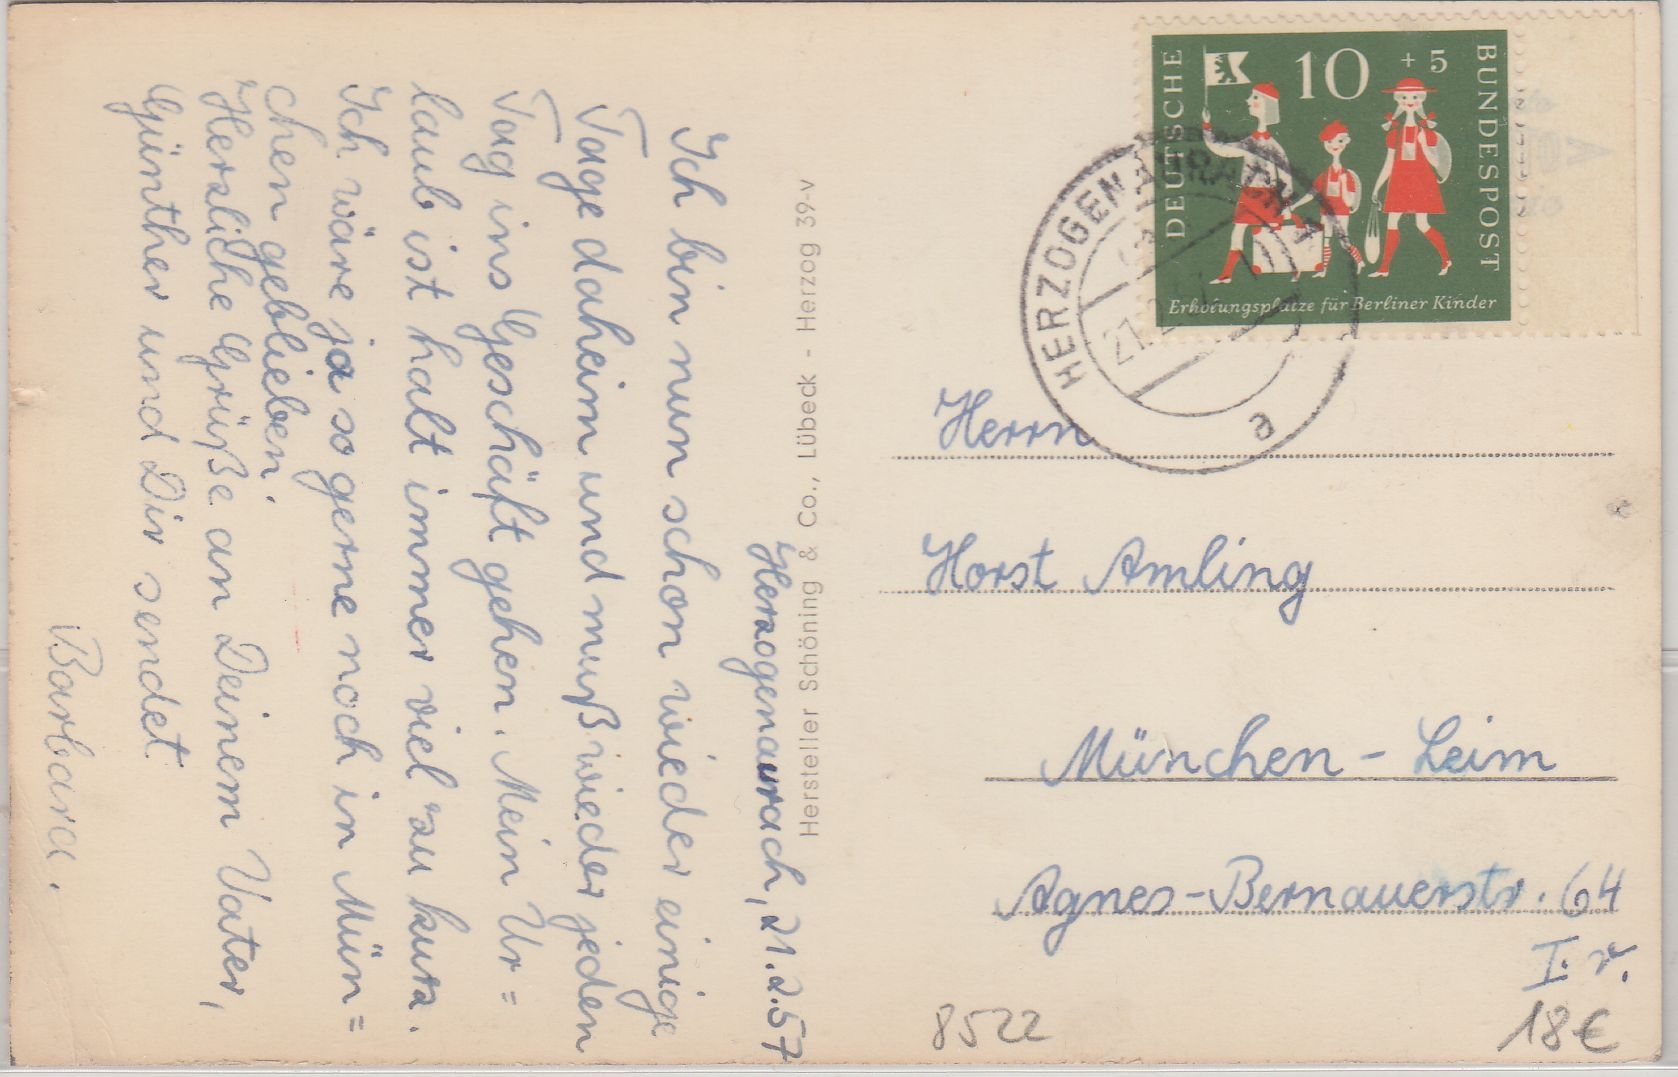 Herzogenaurach, 21.2.57
Ich bin nun schon wieder einige
Tage daheim und muß wieder jeden
Tag ins Geschäft gehen. Mein Ur =
laub ist halt immer viel zu kurz.
Ich wäre ja so gerne noch in Mün =
chen geblieben.
Herzliche Grüße an Deinem Vater,
Günther und Dir sendet
Barbara.
Hersteller Schöning & Co., Lübeck - Herzog 39-v
DEUTSCHE
BUNDESPOST
10 + 5
Erholungsplätze für Berliner Kinder
HERZOGENAURACH 1
a
Herrn
Horst Amling
München - Leim
Agnes-Bernauerstr. 64
I. r.
8522
18€